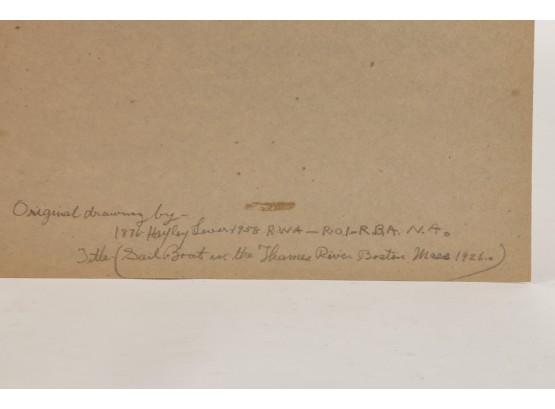 Original drawing by -
1876 Hayley Lever 1958 R.W.A - R.O.I - R.B.A. N.A.
Title (Sail Boat in the Thames River Boston Mass 1926.)